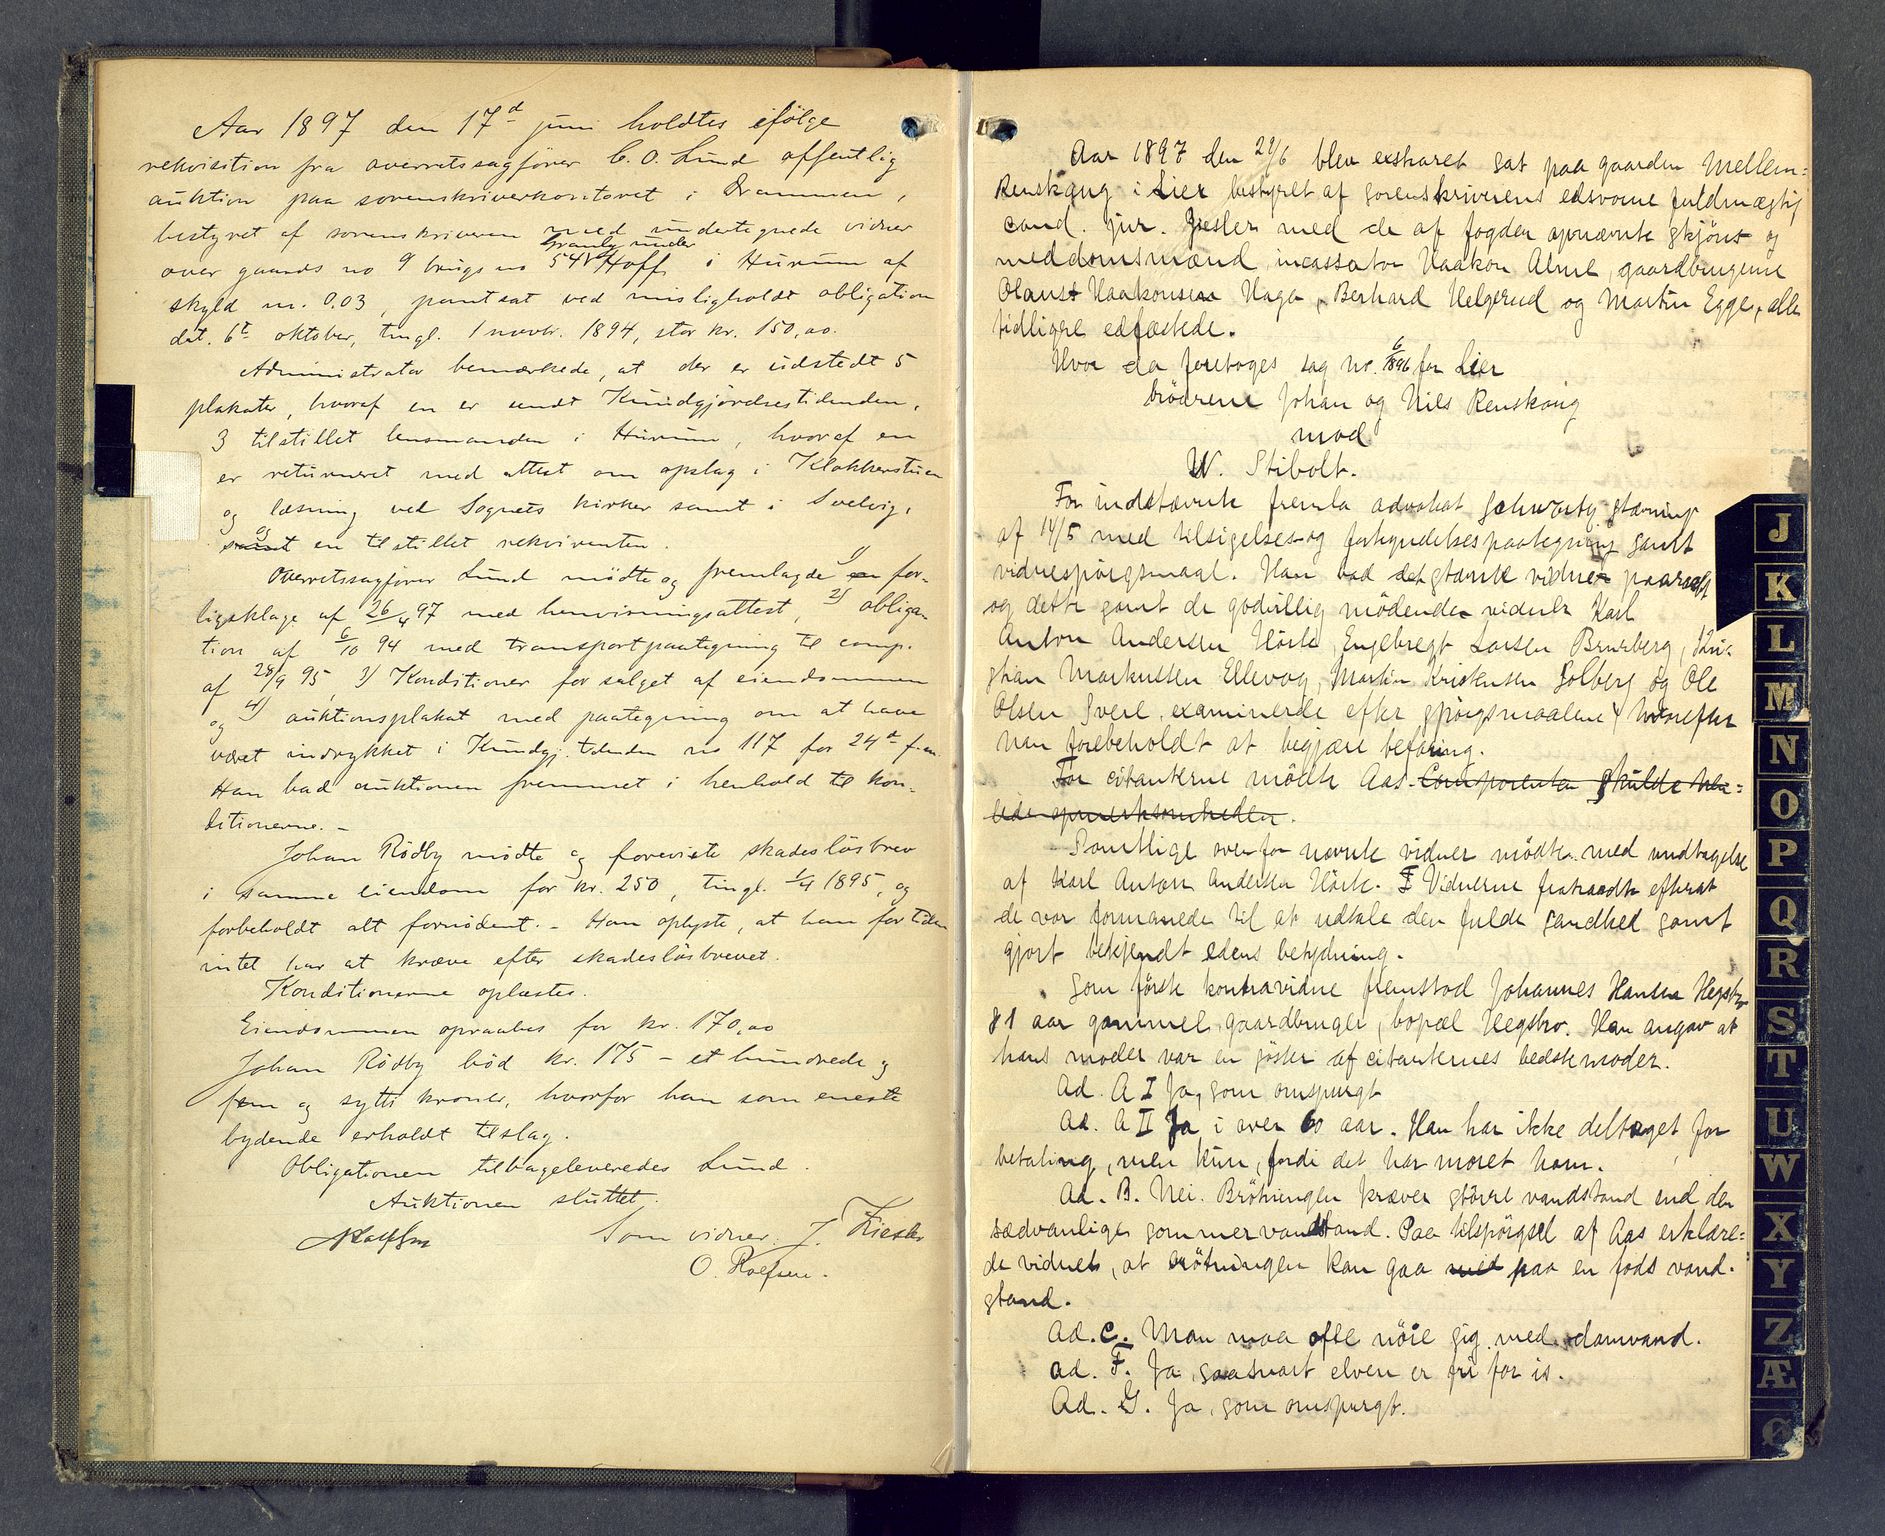 Aar 1897 den 17d juni holdtes ifölge
rekvisition fra overretssagförer C. O. Lund offentlig
auktion paa sorenskriverkontoret i Drammen,
bestyret af sorenskriveren med undertegnede vidner
Granly under
over gaards no 9 brugs no 54 Hoff i Hurum af
skyld m. 0.03, pantsat ved misligholdt obligation
dat. 6te oktober, tingl. 1 novbr. 1894, stor kr. 150,00.
Administrator bemærkede, at der er udstedt 5
plakater, hvoraf en er sendt Kundgjörelsestidenden,
3 tilstillet lensmanden i Hurum, hvoraf en
er returneret med attest om opslag i Klokkerstuen
og læsning ved Sognets kirker samt i Svelvig,
samt og en tilstillet rekvirenten.
Overretssagförer Lund mödte og fremlagde 1) en for-
ligsklage af 26/4 97 med henvisningsattest, 2) obliga-
tion af 6/10 94 med transportpaategning til comp.
af 28/9 95, 3) Konditioner for salget af eiendommen
og 4) auktionsplakat med paategning om at have
været indrykket i Kundgj. tidenden no 117 for 24d f. m.
Han bad auktionen fremmet i henhold til kon-
ditionerne. –
Johan Rödby mödte og foreviste skadeslösbrev
i samme eiendom for kr. 250, tingl. 1/4 1895, og
forbeholdt alt fornödent. – Han oplyste, at han for tiden
intet har at kræve efter skadeslösbrevet.
Konditionerne oplæstes.
Eiendommen opraabes for kr. 170,00
Johan Rödby böd kr. 175 – et hundrede og
fem og sytti kroner, hvorfor han som eneste
bydende erholdt tilslag.
Obligationen tilbageleveredes Lund.
Auktionen sluttet.
Som vidner: J. Ziesler
O. Roefsen.
Aar 1897 den 29/6 blev extraret sat paa gaarden Mellem-
Renskaug i Lier bestyret af sorenskriverens edsvorne fuldmægtig
cand. jur. Ziesler med de af fogden opnævnte skjöns og
meddomsmænd, incassator Haakon Alme, gaardbrugerne
Olaus Haakonsen Haga, Berhard Helgerud og Martin Egge, alle
tidligere edfæstede.
Hvor da foretoges sag no. 6/1896 for Lier
brödrene Johan og Nils Renskaug
mod
W. Stibolt.
For indstævnte fremla advokat Schwartz stævning
af 14/5 med tilsigelses og forkyndelsespaategning samt
vidnespörgsmaal. Han bad de stævnte vidner paaraabt
og dette samt de godvillig mödende vidner Karl
Anton Andersen Hörte, Engebregt Larsen Brurberg, Kri-
stian Markussen Ellevog, Martin Kristensen Solberg og Ole
Olsen Svere, examinerede efter spörgsmaalene, hvorefter
han forebeholdt at begjære befaring.
For citanterne mödte Aas. Comparenten skulde hen-
lede opmerksomheden.
Samtlige ovenfor nævnte vidner mödte med undtagelse
af Karl Anton Andersen Hörte. Vidnerne fratraadte efterat
de var formanede til at udtale den fulde sandhed samt
gjort bekjendt edens betydning.
Som förste kontravidne fremstod Johannes Hansen Hegsbro
81 aar gammel, gaardbruger, bopæl Hegsbro. Han angav at
hans moder var en söster af citanternes bedstemoder.
Ad. A I Ja, som omspurgt
Ad. A II Ja, i over 60 aar. Han har ikke deltaget for
betaling, men kun, fordi det har moret ham.
Ad. B. Nei. Brötningen kræver större vandstand end den
sædvanlige sommervandstand. Paa tilspörgsel af Aas erklære-
de vidnet, at brötningen kan gaa med paa en fods vand-
stand.
Ad. C. Man maa ofte nöie sig med damvand.
ad. F. Ja, saasnart elven er fri for is.
Ad. G. Ja, som omspurgt.
J
K
L
M
N
O
P
Q
R
S
T
U
W
X
Y
Z
Æ
Ø